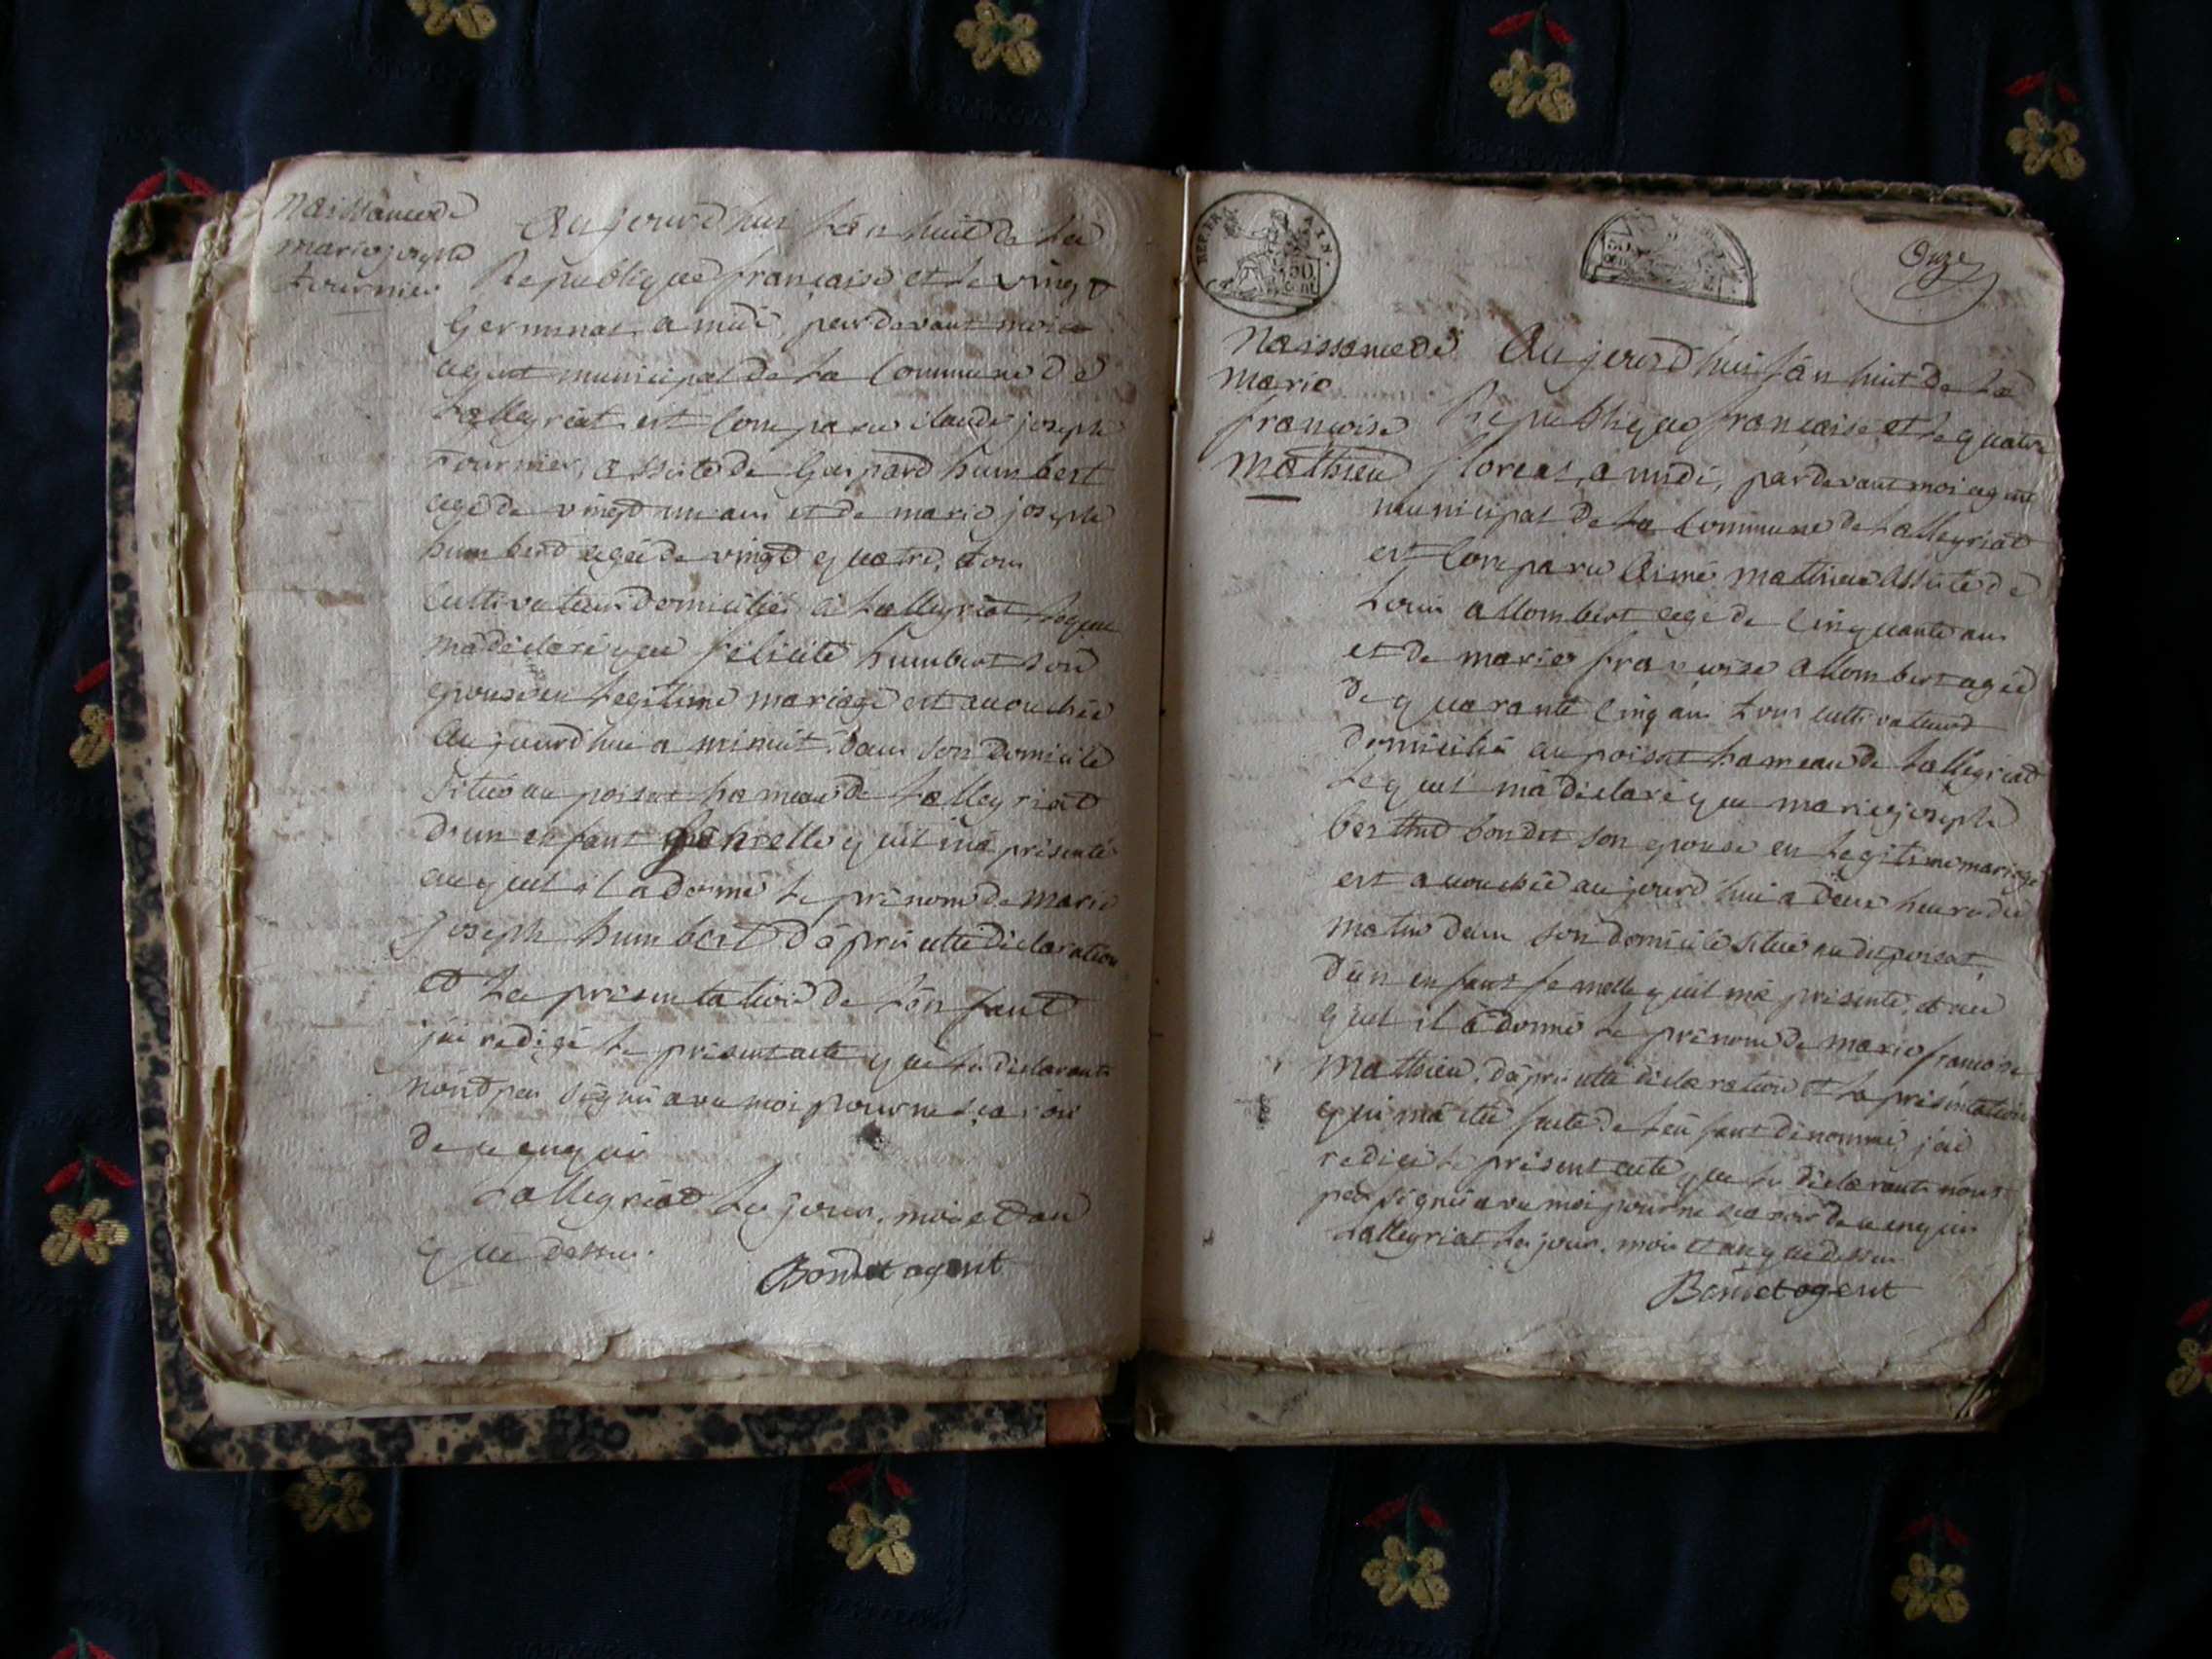 Naissance de
marie joseph
fournier
Aujourd'hui l'an huit de la
Republique française et le vingt
Germinal a midi, par devant moi
agent municipal de la Commune de
Lalleyriat est Comparu claude joseph
Fournier, assisté de Gaspard humbert
agé de vingt un ans et de marie joseph
humberd agée de vingt quatre, tous
Cultivateurs domiciliés a Lalleyriat lequel
m'a déclaré que félicité humbert son
epouse en legitime mariage est accouchée
Aujourd'hui a minuit dans son domicile
situé au poisat hameau de Lalleyriat
d'un enfant femelle qu'il m'a présenté
auquel il a donné le prénom de marie
Joseph humbert d'après cette déclaration
et la présentation de l'enfant
j'ai redigé le présent acte que les déclarants
n'ont pas signé avec moi pour ne sçavoir
de ce enquis
Lalleyriat les jour, mois et an
que dessus.
Bondet agent
REP. FRA
AIN.
50
cent
50
Onze
Naissance de
Marie
françoise
Mathieu
Aujourd'hui l'an huit de la
Republique française et le quatre
floreal, a midi, par devant moi agent
municipal de la Commune de Lalleyriat
est Comparu Aimé Mathieu assisté de
Louis allombert agé de Cinquante ans
et de marie françoise allombert agée
de quarante Cinq ans tous cultivateurs
domicilié au poisat hameau de Lalleyriat
Lequel m'a déclaré que marie joseph
berthet bondet son epouse en legitime mariage
est accouchée aujourd'hui a deux heures du
matin dans son domicile situé au dit poisat,
d'un enfant femelle qu'il m'a présenté, et au
quel il a donné le prénom de marie françoise
Mathieu. d'après cette déclaration et la présentation
qui m'a été faite de l'enfant dénommé, j'ai
redigé le présent acte que les déclarants n'ont
pas signé avec moi pour ne sçavoir de ce enquis
Lalleyriat les jour, mois et an que dessus
Bondet agent